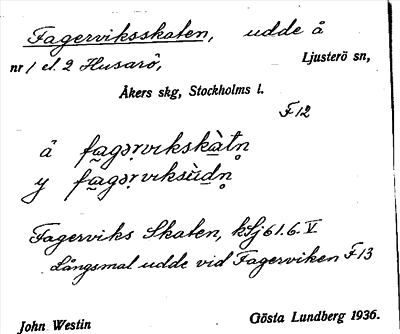 Fagerviksskaten, udde å
nr 1 el. 2 Husarö, Ljusterö sn,
Åkers skg, Stockholms l.
F12
å fagərvikskàtn̥
y fagərviksùdn̥
Fagerviks Skaten, kSj 61.6.V
Långsmal udde vid Fagerviken F13
John Westin Gösta Lundberg 1936.